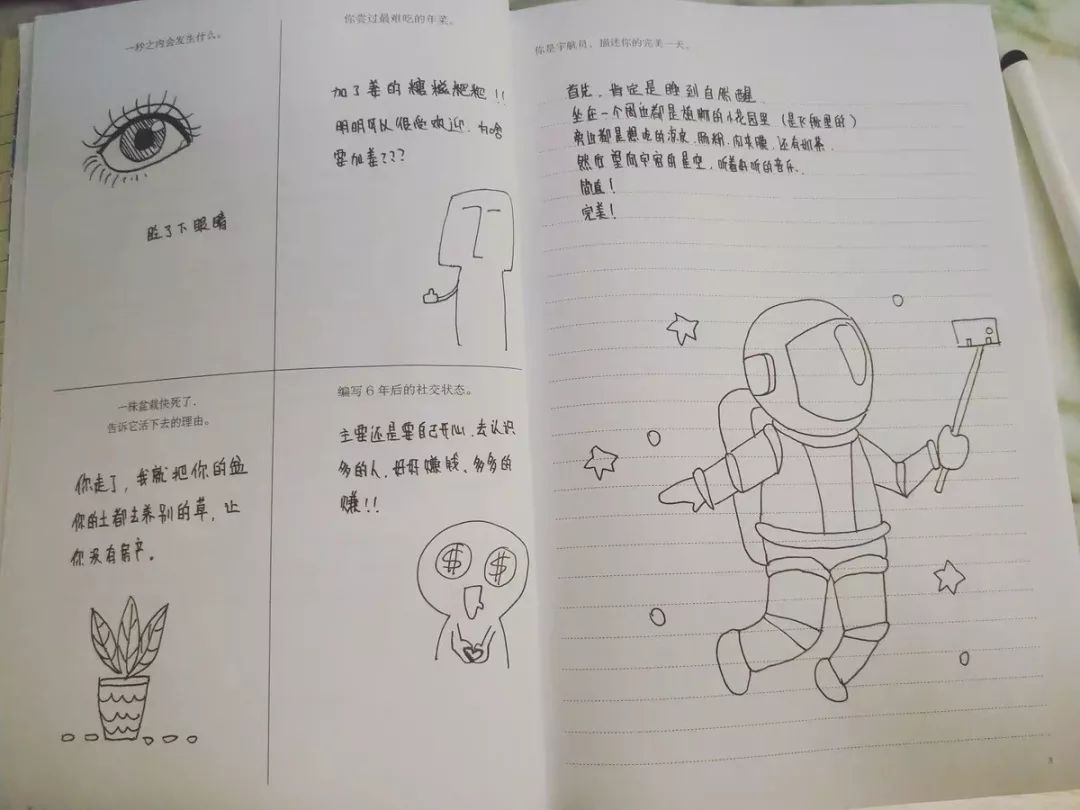 一秒之内会发生什么。
眨了下眼睛
你尝过最难吃的年菜。
加了姜的糖糍粑粑!!
明明可以很受欢迎,为啥
要加姜???
一株盆栽快死了,
告诉它活下去的理由。
你走了,我就把你的盆
你的土都去养别的草,让
你没有房产。
编写6年后的社交状态。
主要还是要自己开心,去认识
多的人,好好赚钱,多多的
赚!!
你是宇航员,描述你的完美一天。
首先,肯定是睡到自然醒,
坐在一个周边都是植物的小花园里(是飞船里的)
旁边都是想吃的凉皮、肠粉、肉夹馍,还有奶茶,
然后望向宇宙的星空,听着好听的音乐,
简直!
完美!
3